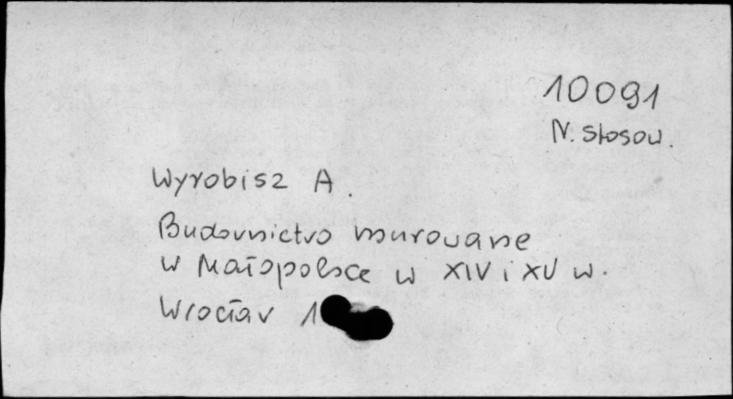 10091
N. Stosow.
Wyrobisz A.
Budownictwo murowane
w Małopolsce w XIV i XV w.
Wrocław 1